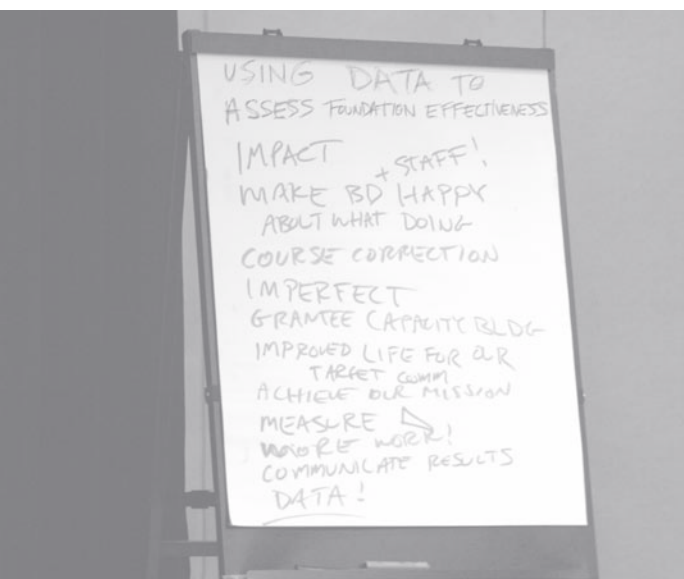 USING DATA TO
ASSESS FOUNDATION EFFECTIVENESS
IMPACT
+ STAFF!
MAKE BD HAPPY
ABOUT WHAT DOING
COURSE CORRECTION
IMPERFECT
GRANTEE CAPACITY BLDG
IMPROVED LIFE FOR OUR
TARGET COMM
ACHIEVE OUR MISSION
MEASURE
MORE WORK!
COMMUNICATE RESULTS
DATA!